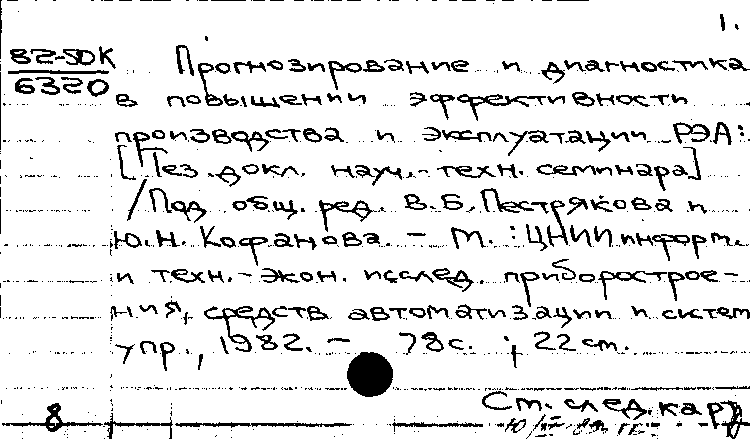 1.
82-5DK Прогнозирование и диагностика
6320 в повышении эффективности
производства и эксплуатации РЭА:
[Тез. докл. науч.-техн. семинара]
/Под общ. ред. В.Б. Пестрякова и
Ю.Н. Кофанова. - М. : ЦНИИ информ.
и техн.-экон. исслед. приборострое-
ния, средств автоматизации и систем
упр., 1982. - 78 с. ; 22 см.
См. след. кар
8